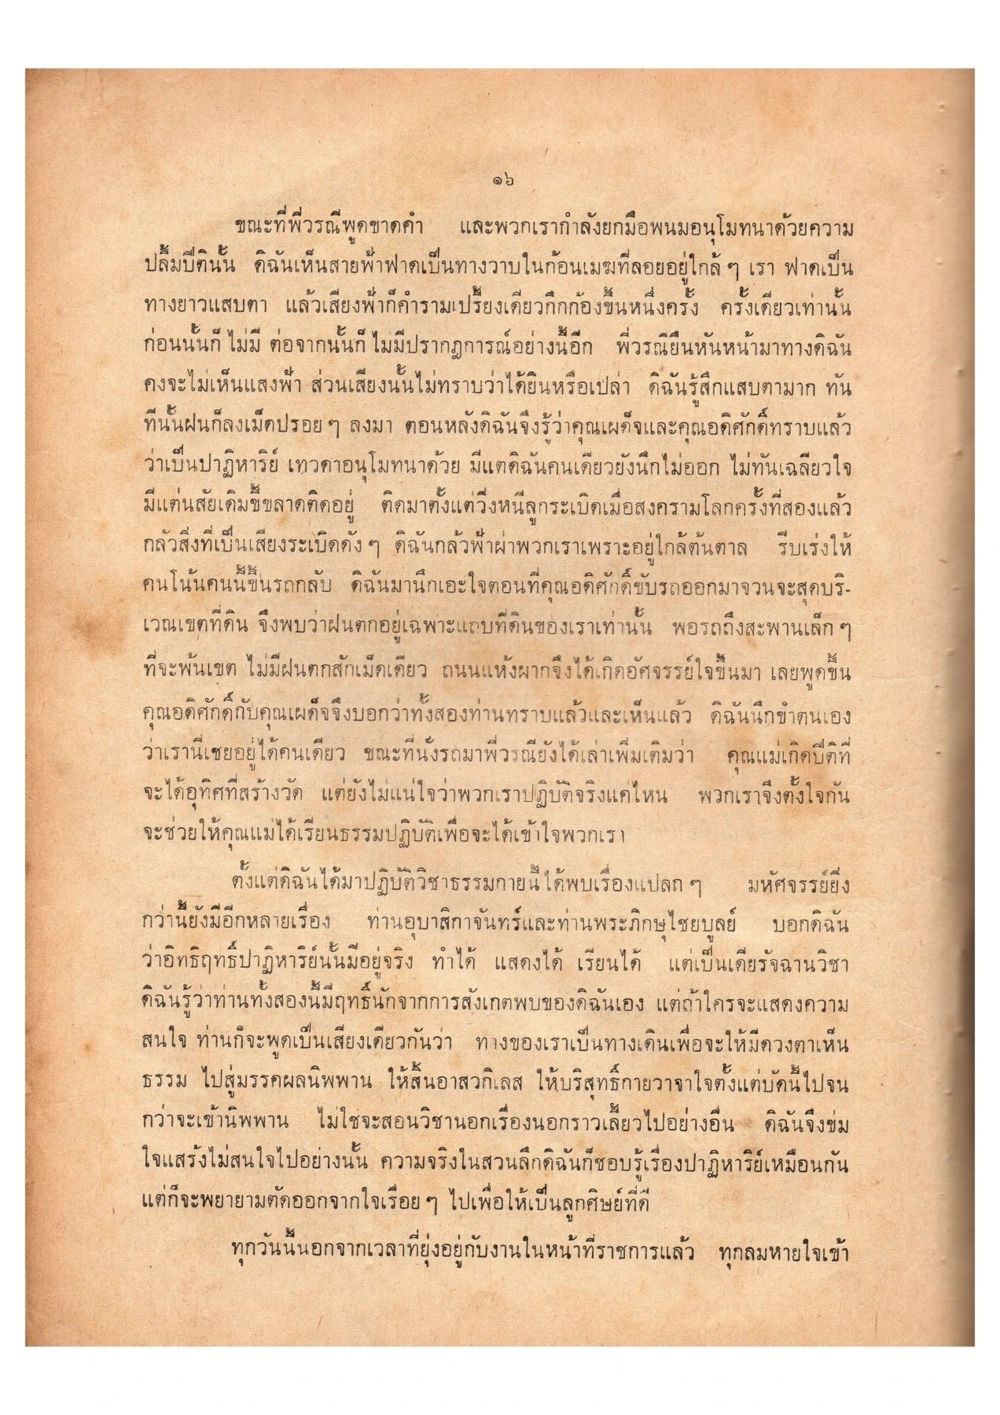 ๑๖
ขณะที่พี่วรณีพูดขาดคำ และพวกเรากำลังยกมือพนมอนุโมทนาด้วยความ
ปลื้มปีตินั้น ดิฉันเห็นสายฟ้าฟาดเป็นทางวาบในก้อนเมฆที่ลอยอยู่ใกล้ ๆ เรา ฟาดเป็น
ทางยาวแสบตา แล้วเสียงฟ้าก็คำรามเปรี้ยงเดียวกึกก้องขึ้นหนึ่งครั้ง ครั้งเดียวเท่านั้น
ก่อนนั้นก็ไม่มี ต่อจากนั้นก็ไม่มีปรากฏการณ์อย่างนี้อีก พี่วรณียืนหันหน้ามาทางดิฉัน
คงจะไม่เห็นแสงฟ้า ส่วนเสียงนั้นไม่ทราบว่าได้ยินหรือเปล่า ดิฉันรู้สึกแสบตามาก ทัน
ทีนั้นฝนก็ลงเม็ดปรอย ๆ ลงมา ตอนหลังดิฉันจึงรู้ว่าคุณเผด็จและคุณอดิศักดิ์ทราบแล้ว
ว่าเป็นปาฏิหาริย์ เทวดาอนุโมทนาด้วย มีแต่ดิฉันคนเดียวยังนึกไม่ออก ไม่ทันเฉลียวใจ
มีแต่นสัยเดิมขี้ขลาดติดอยู่ ติดมาตั้งแต่วิ่งหนีลูกระเบิดเมื่อสงครามโลกครั้งที่สองแล้ว
กลัวสิ่งที่เป็นเสียงระเบิดดัง ๆ ดิฉันกลัวฟ้าผ่าพวกเราเพราะอยู่ใกล้ต้นตาล รีบเร่งให้
คนโน้นคนนี้ขึ้นรถกลับ ดิฉันมานึกเอะใจตอนที่คุณอดิศักดิ์ขับรถออกมาจวนจะสุดบริ-
เวณเขตที่ดิน จึงพบว่าฝนตกอยู่เฉพาะแถบที่ดินของเราเท่านั้น พอรถถึงสะพานเล็ก ๆ
ที่จะพ้นเขต ไม่มีฝนตกสักเม็ดเดียว ถนนแห้งผากจึงได้เกิดอัศจรรย์ใจขึ้นมา เลยพูดขึ้น
คุณอดิศักดิ์กับคุณเผด็จจึงบอกว่าทั้งสองท่านทราบแล้วและเห็นแล้ว ดิฉันนึกขำตนเอง
ว่าเรานี่เชยอยู่ได้คนเดียว ขณะที่นั่งรถมาพี่วรณียังได้เล่าเพิ่มเติมว่า คุณแม่เกิดปีติที่
จะได้อุทิศที่สร้างวัด แต่ยังไม่แน่ใจว่าพวกเราปฏิบัติจริงแค่ไหน พวกเราจึงตั้งใจกัน
จะช่วยให้คุณแม่ได้เรียนธรรมปฏิบัติเพื่อจะได้เข้าใจพวกเรา
ตั้งแต่ดิฉันได้มาปฏิบัติวิชาธรรมกายนี้ได้พบเรื่องแปลก ๆ มหัศจรรย์ยิ่ง
กว่านี้ยังมีอีกหลายเรื่อง ท่านอุบาสิกาจันทร์และท่านพระภิกษุไชยบูลย์ บอกดิฉัน
ว่าอิทธิฤทธิ์ปาฏิหาริย์นั้นมีอยู่จริง ทำได้ แสดงได้ เรียนได้ แต่เป็นเดียรัจฉานวิชา
ดิฉันรู้ว่าท่านทั้งสองนี้มีฤทธิ์นักจากการสังเกตพบของดิฉันเอง แต่ถ้าใครจะแสดงความ
สนใจ ท่านก็จะพูดเป็นเสียงเดียวกันว่า ทางของเราเป็นทางเดินเพื่อจะให้มีดวงตาเห็น
ธรรม ไปสู่มรรคผลนิพพาน ให้สิ้นอาสวกิเลส ให้บริสุทธิ์กายวาจาใจตั้งแต่บัดนี้ไปจน
กว่าจะเข้านิพพาน ไม่ใช่จะสอนวิชานอกเรื่องนอกราวเลี้ยวไปอย่างอื่น ดิฉันจึงข่ม
ใจแสร้งไม่สนใจไปอย่างนั้น ความจริงในส่วนลึกดิฉันก็ชอบรู้เรื่องปาฏิหาริย์เหมือนกัน
แต่ก็จะพยายามตัดออกจากใจเรื่อย ๆ ไปเพื่อให้เป็นลูกศิษย์ที่ดี
ทุกวันนี้นอกจากเวลาที่ยุ่งอยู่กับงานในหน้าที่ราชการแล้ว ทุกลมหายใจเข้า